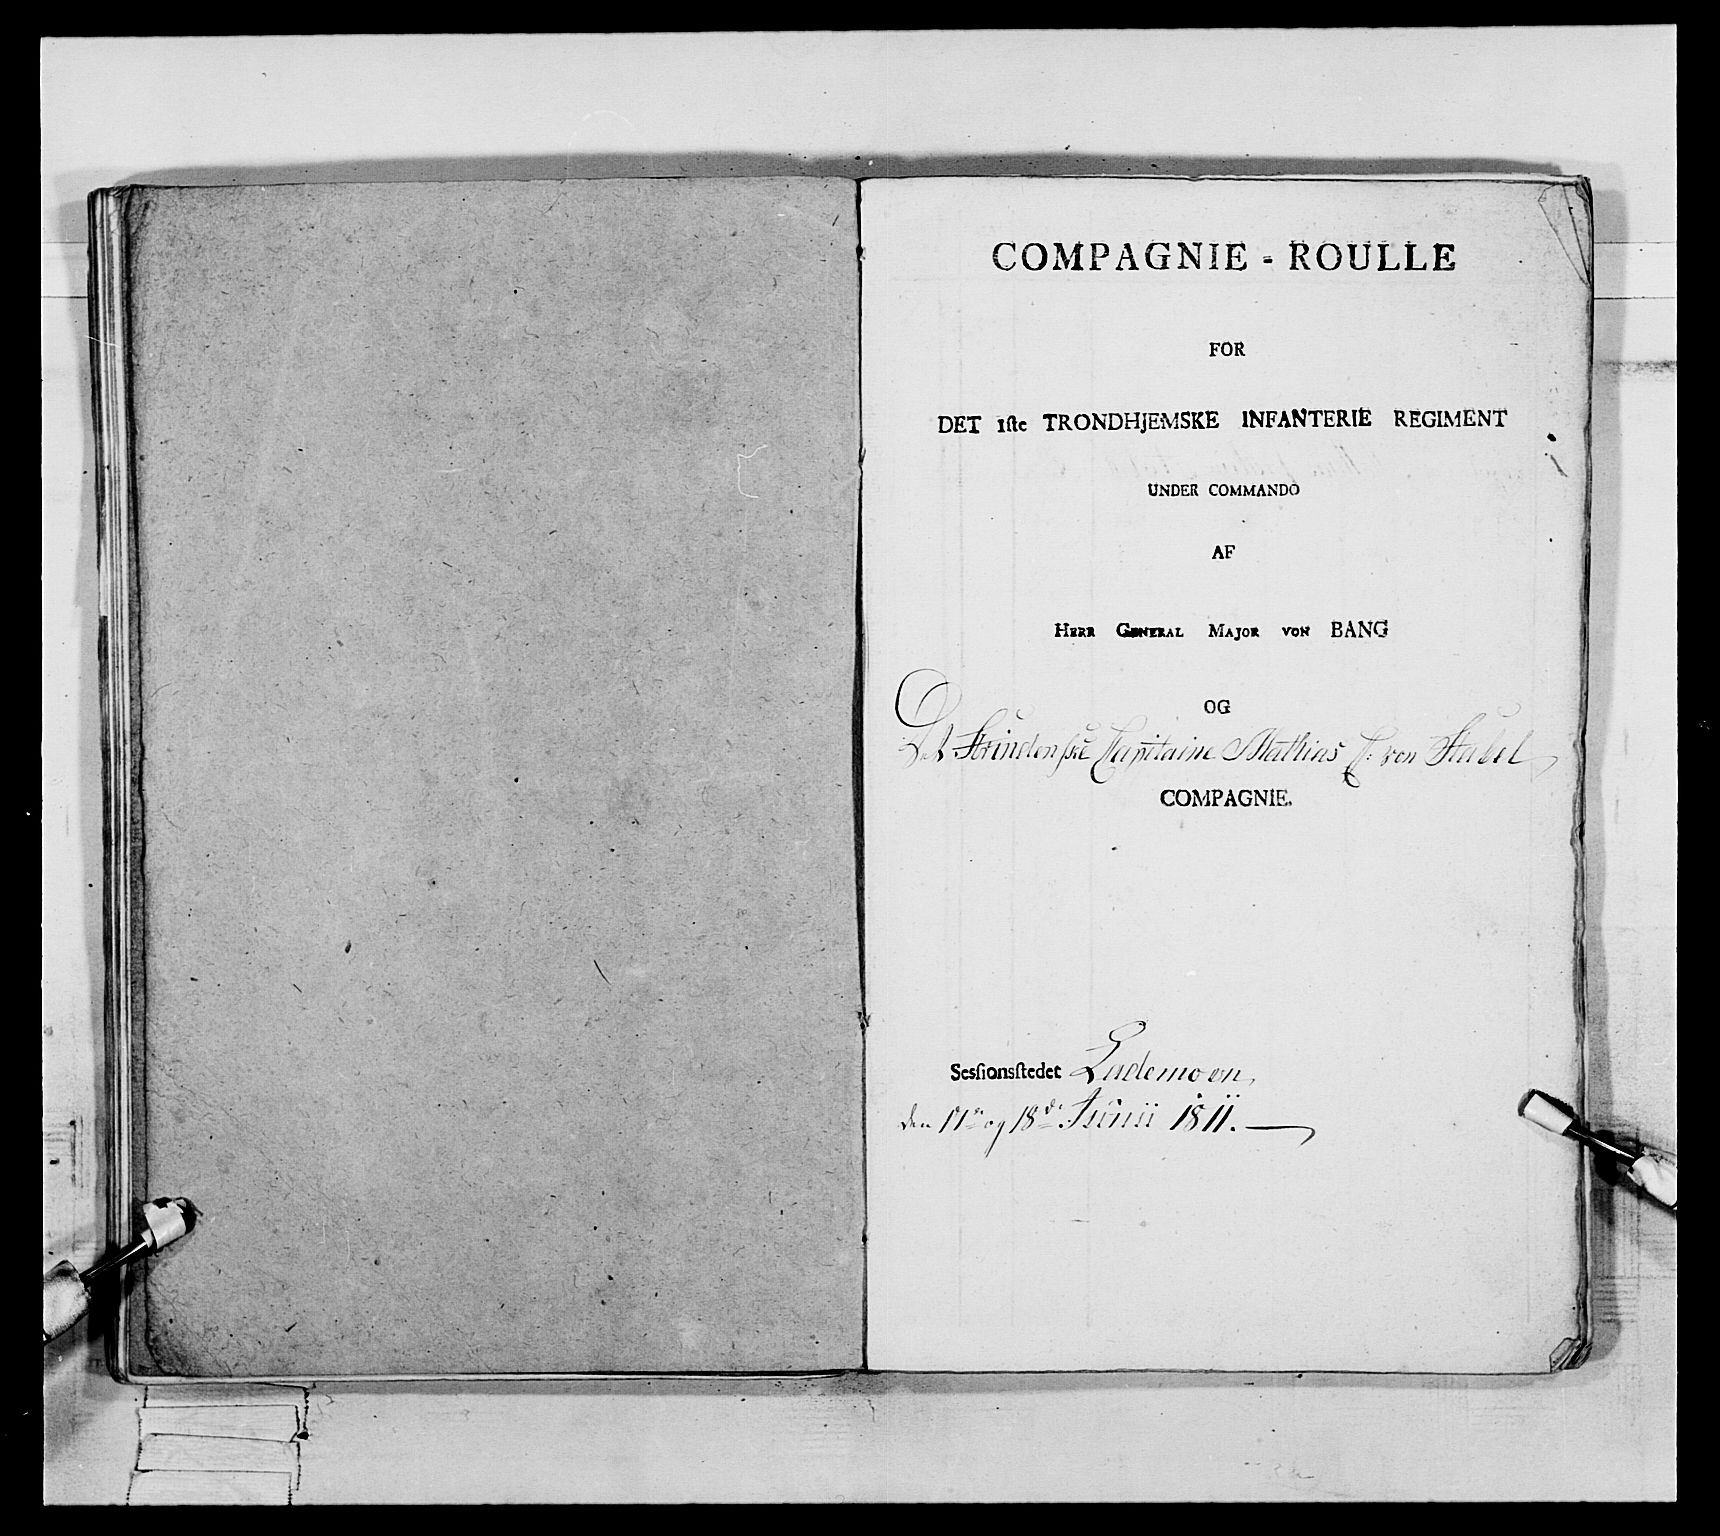 COMPAGNIE - ROULLE
FOR
DET 1ſte TRONDHJEMSKE INFANTERIE REGIMENT
UNDER COMMANDO
AF
HERR GENERAL MAJOR VON BANG
OG
Det Strindenske Capitaine Mathias F: von Stabel
COMPAGNIE.
Sesſionsſtedet Lademoen,
den 17de og 18de Junii 1811.